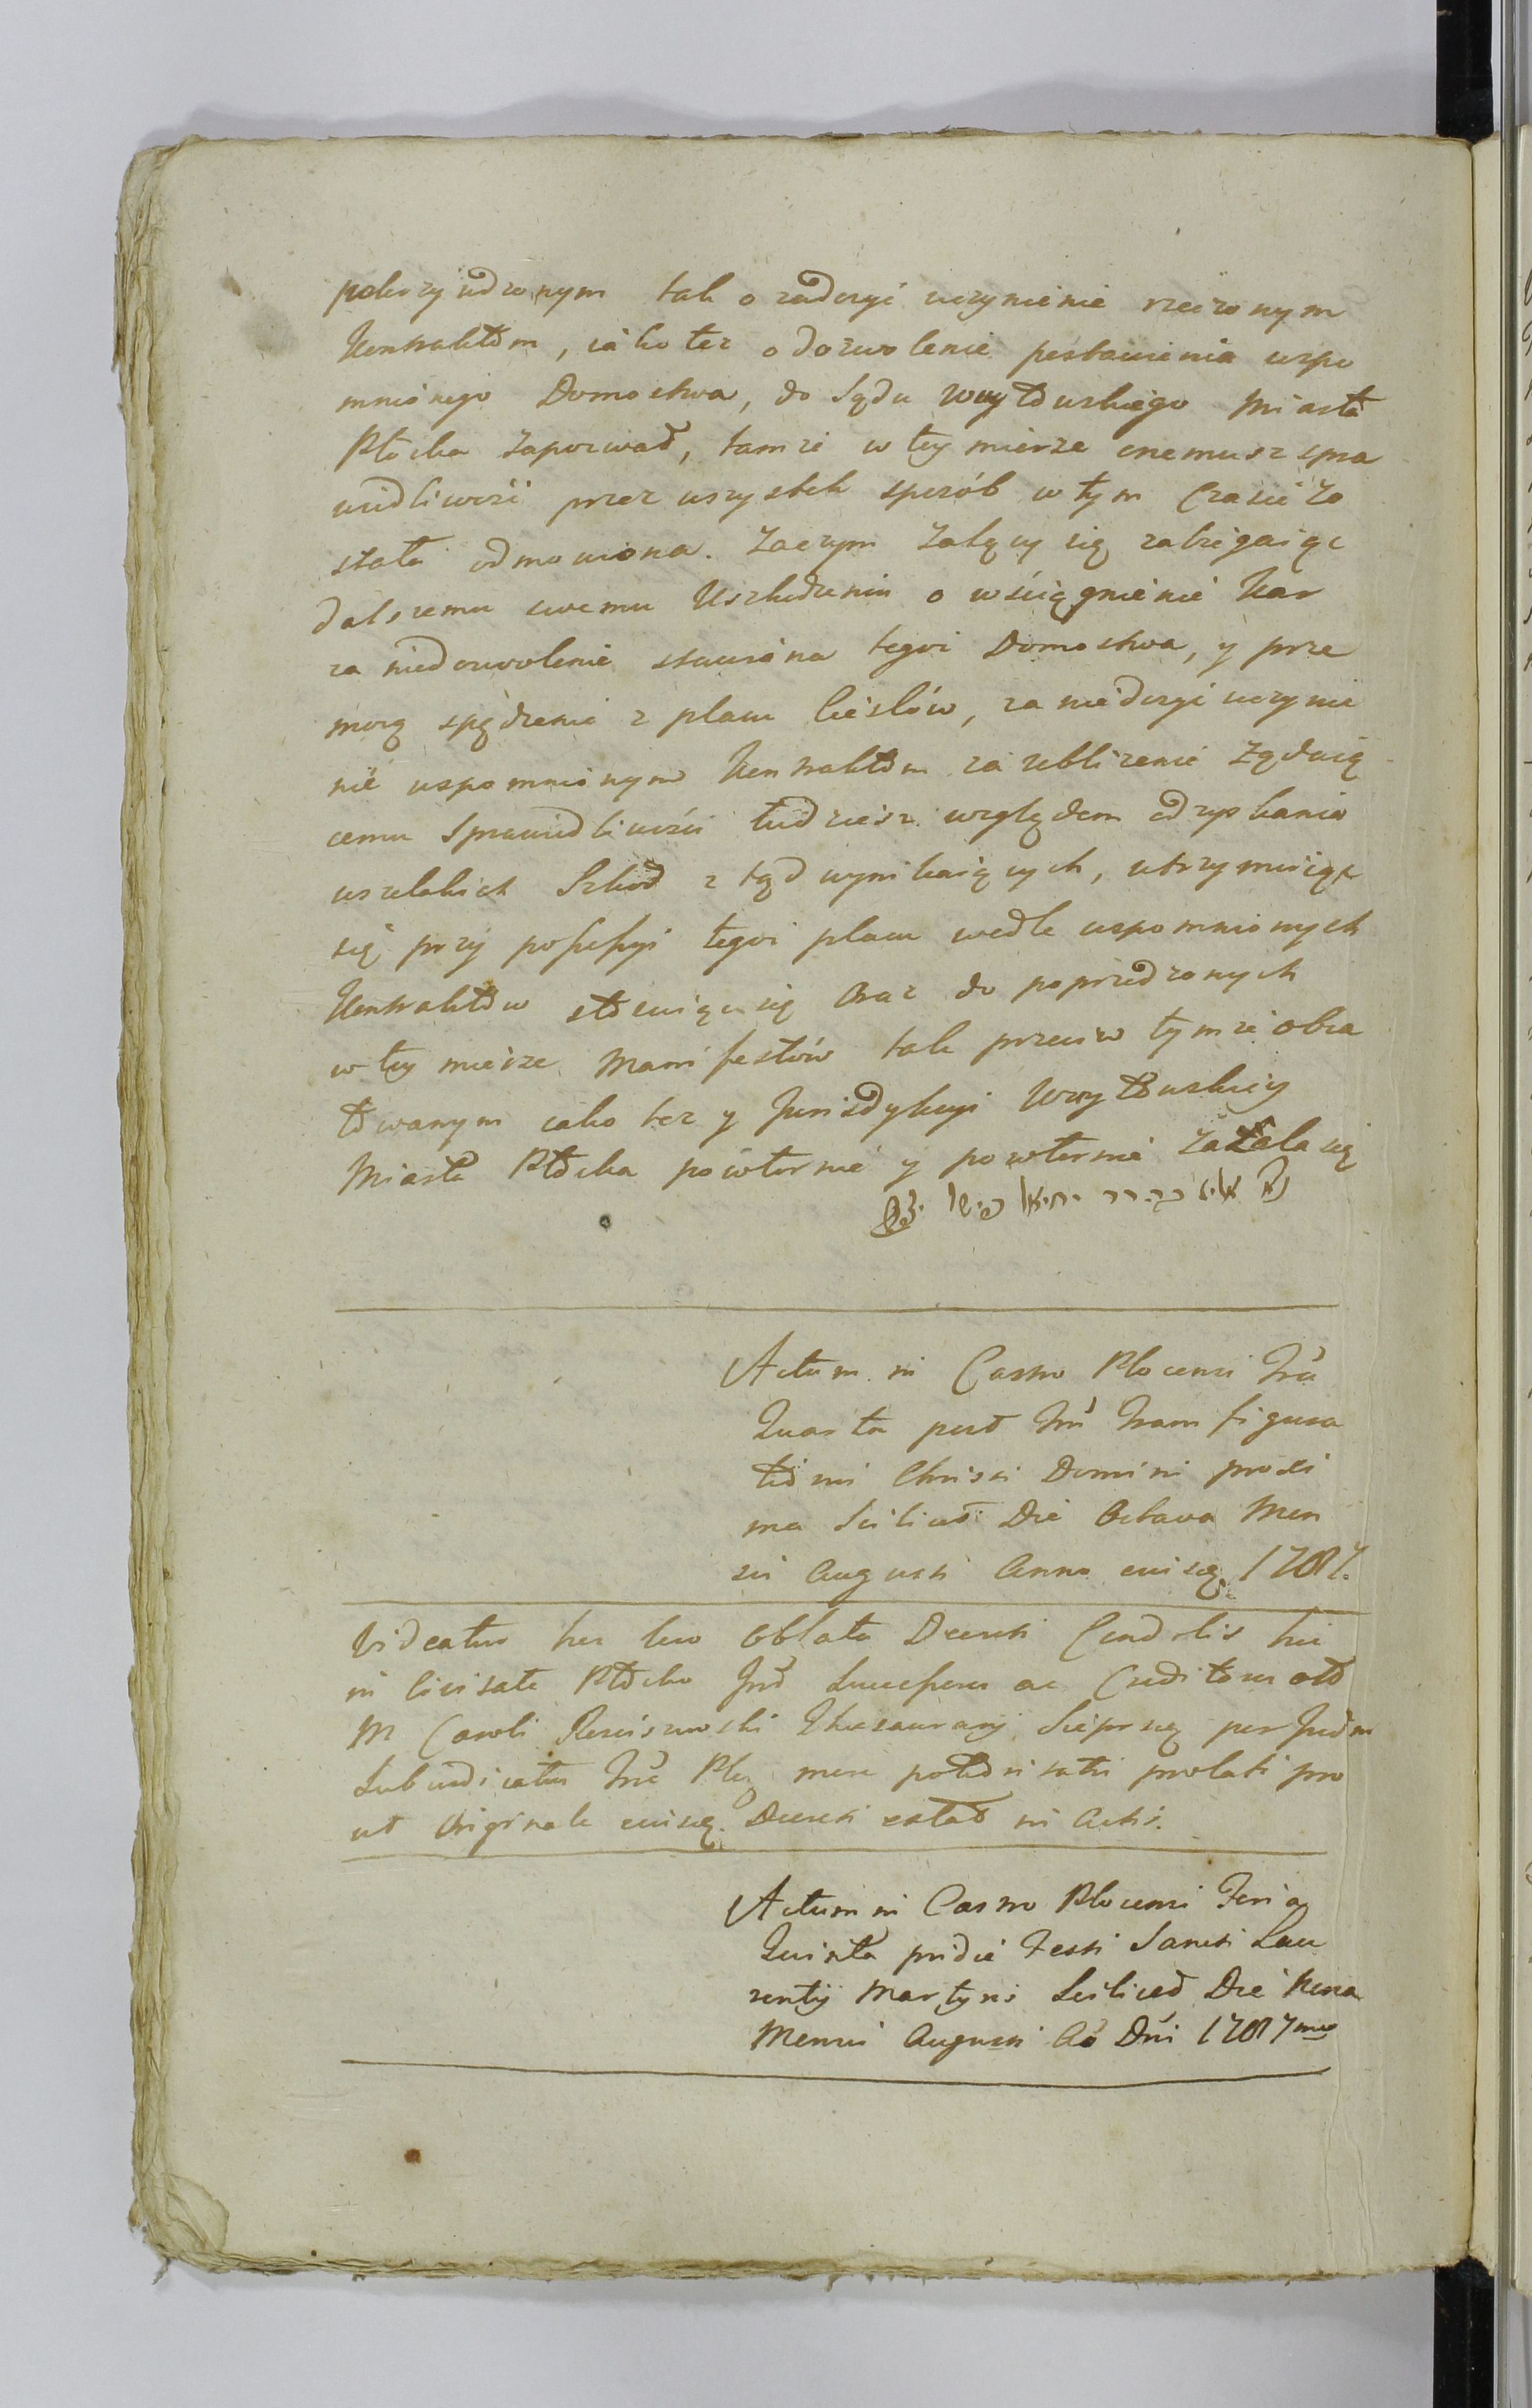 pokrzywdzonym tak o zadosyć uczynienie rzeczonym
Kontraktom, iako też o dozwolenie postawienia wspo
mnionego Domostwa, do Sądu Woytowskiego Miasta
Płocka zapozwał, tamże w tey mierze onemusz spra
wiedliwość przez wszystek sposób w tym Czasie zo
stała odmowiona. Zaczym Żalący się zabiegaiąc
dalszemu swemu Uszkodzeniu o wściągnienie Kar
za niedozwolenie stawiana tegoż Domostwa, y prze
mocą spędzenie z placu Cieslów, za niedosyć uczynie
nie wspomnionym Kontraktom za ubliżenie Żądaią
cemu Sprawiedliwości tudziesz względem odzyskania
wszelakich Szkod z tąd wynikaiących, utrzymuiąc
się przy possessyi tegoż placu wedle wspomnionych
Kontraktów stosuiąc się Oraz do poprzedzonych
w tey mierze Manifestów tak przeciw tymże obża
łowanym iako też y Jurisdykcyi Woytowskiey
Miasta Płocka powtornie y powtornie zażala się

Actum in Castro Plocensi Fria
Quarta post Ftū Transfigura
tionis Christi Domini proxi
ma Scilicet Die Octava Men
sis Augusti Anno eiusq. 1787.
Videatur hoc loco Oblata Decreti Condolis hic
in Civitate Płocko Inr Successores ac Creditores olim
M Caroli Thesaurarij Sieprseg per Judm
Subiudicatus Tre Ploc mere potioritatis prolati pro
ut Originale eiusq. Decreti extat in Actis.
Actum in Castro Plocensi Feria
Quinta pridie Festi Sancti Lau
rentij Martyris Scilicet Die Nona
Mensis Augusti Aō Dni 1787mo